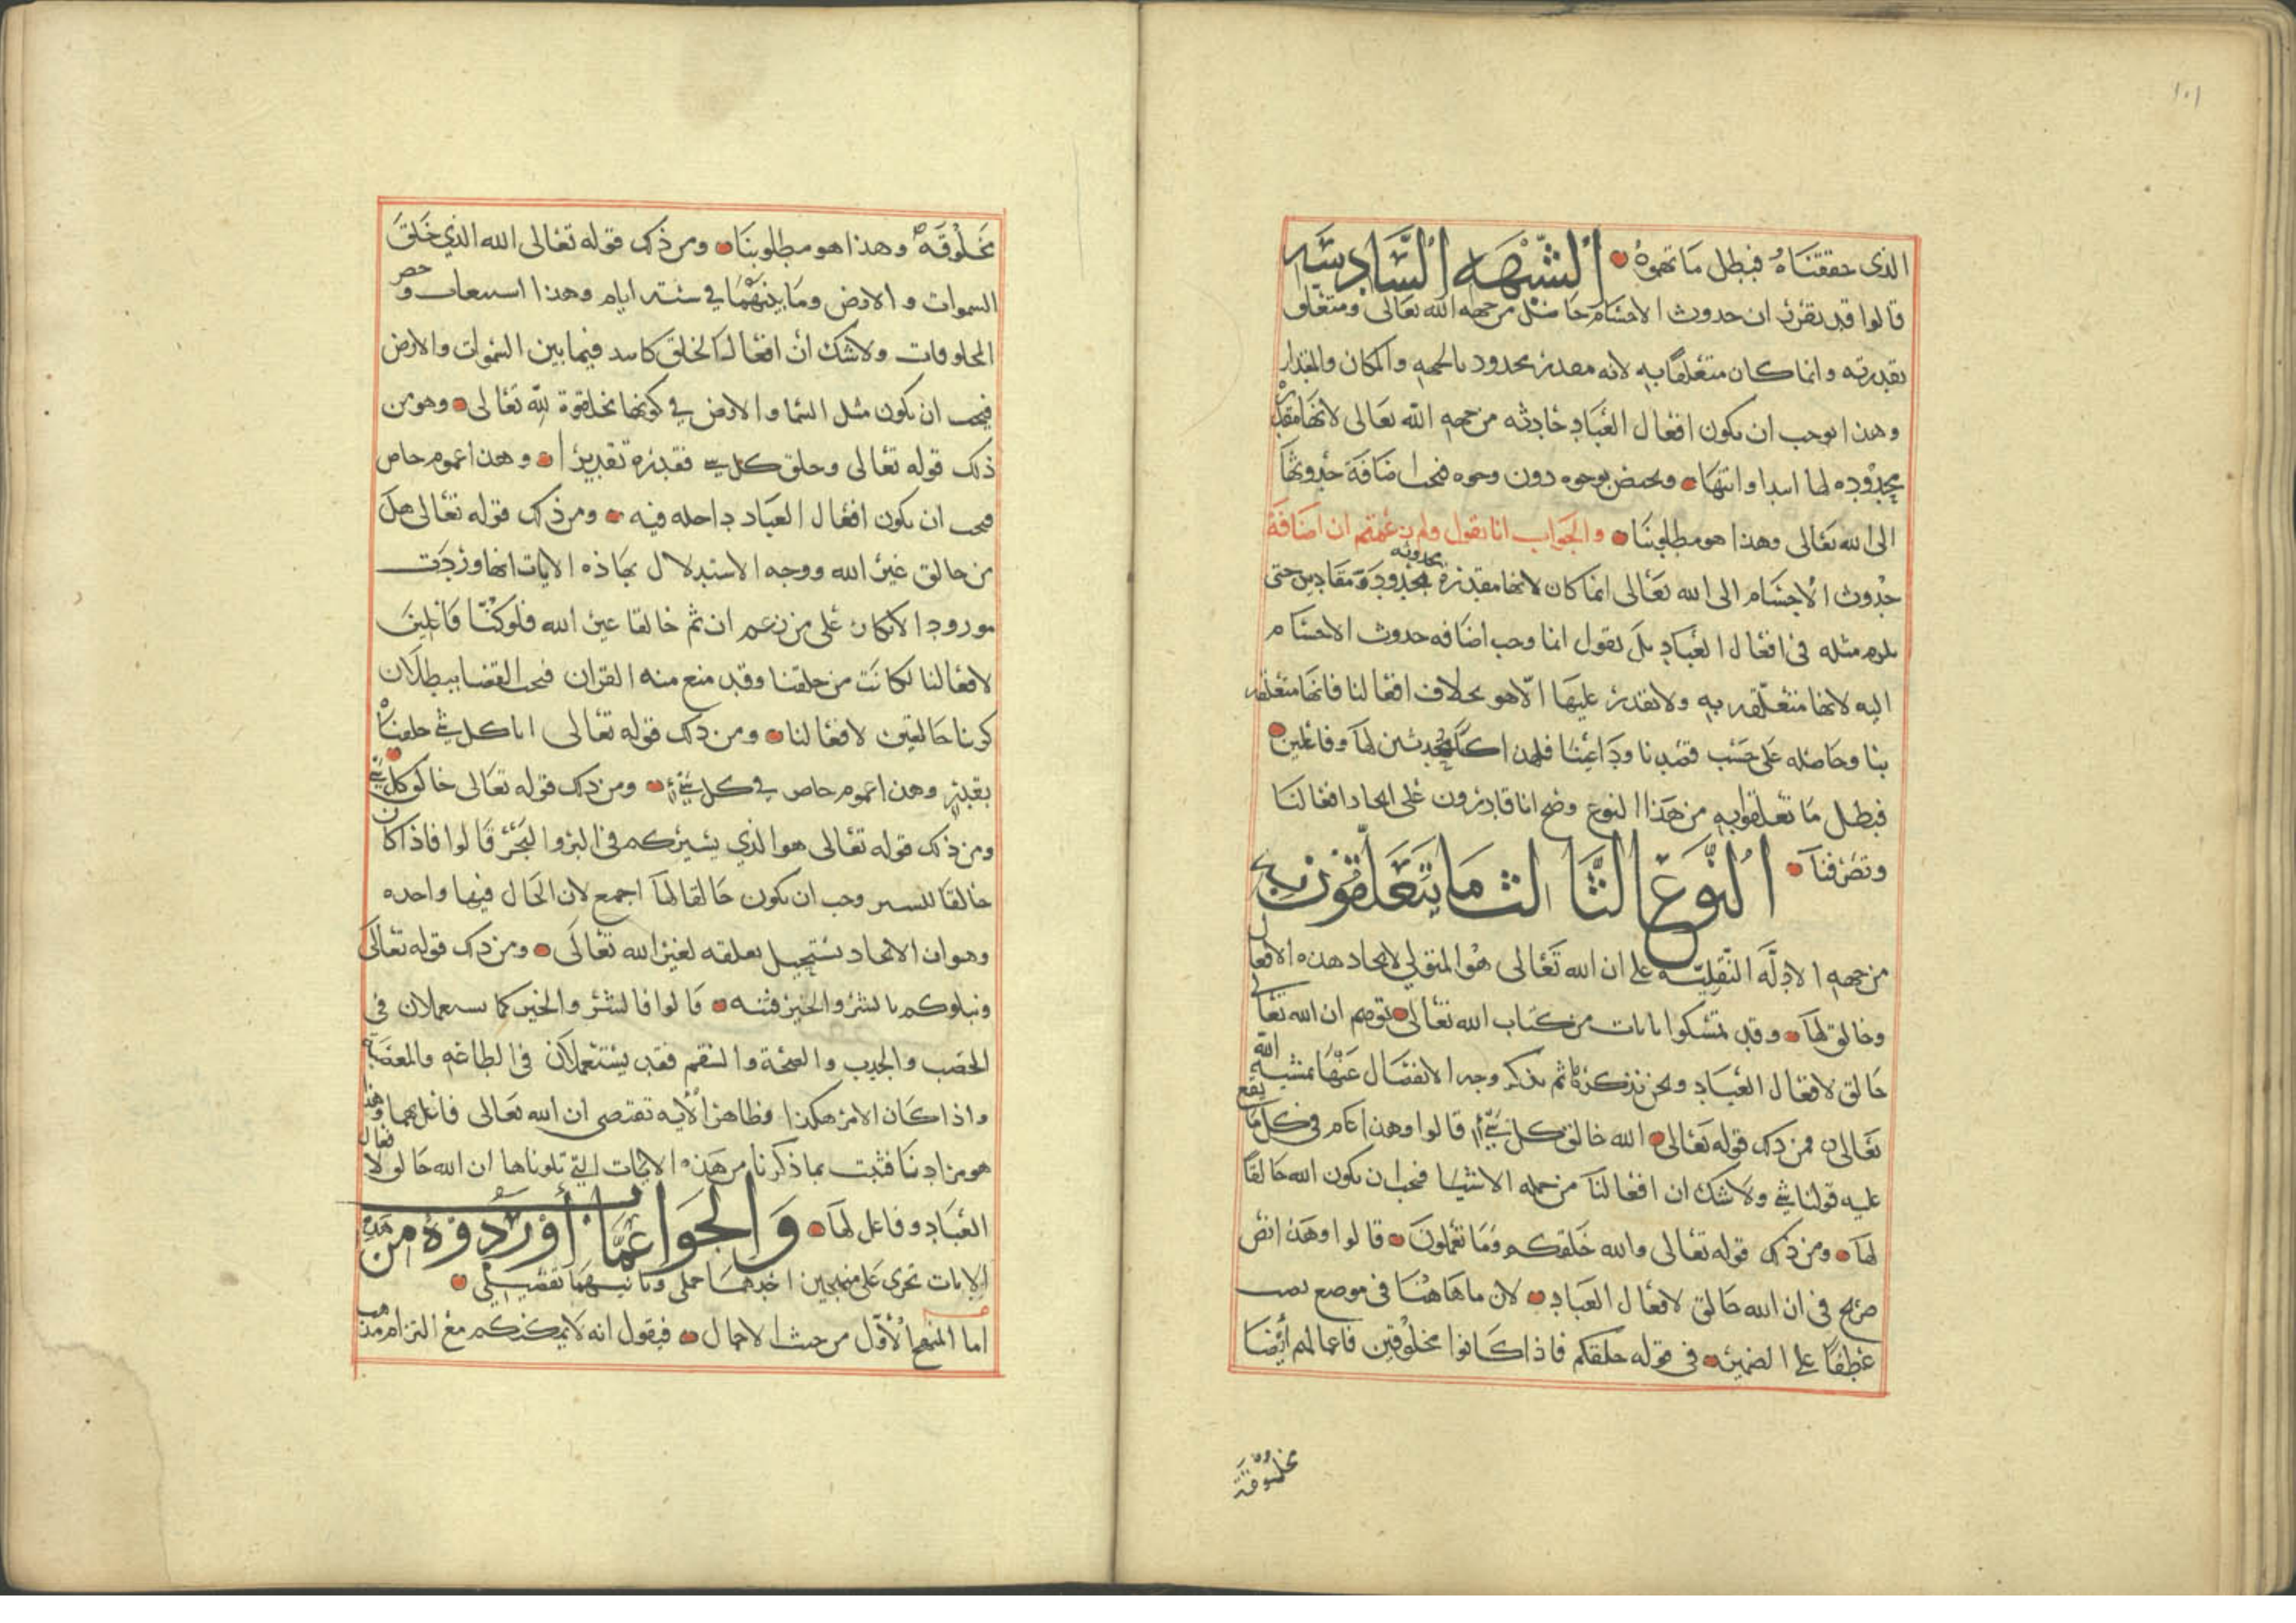 ١٠١
الذى حققناه فبطل ما توهموه الشبهه السادسه
قالوا قد تقرر ان حدوث الاجسام حاصل من جهه الله تعالى ومتعلق
بقدرته وانما كان متعلقا به لانه مقدر بحدود بالجهه والمكان والمقدار
وهذا يوجب ان يكون افعال العباد حادثه من جهه الله تعالى لانها مقدره
بحدوده لها ابتدا وانتها ومختص بوجوه دون وجوه فيجب اضافة حدوثها
الى الله تعالى وهذا هو مطلوبنا والجواب انا نقول ولم زعمتم ان اضافة
حدوث الاجسام الى الله تعالى انما كان لانها مقدرة بحدود ومقادير حتى
يلزم مثله فى افعال العباد بل نقول انما وجب اضافه حدوث الاجسام
اليه لانها متعلقه به ولا نقدر عليها الا هو بخلاف افعالنا فانها متعلقه
بنا وحاصله على حسب قصدنا وداعينا فلهذا كنا محدثين لها وفاعلين
فبطل ما تعلقوا به من هذا النوع وضح انا قادرون على ايجاد افعالنا
وتصرفنا النوع الثالث ما يتعلقون به
من جهه الادلة النقلية على ان الله تعالى هو المتولى لايجاد هذه الافعال
وخالق لها وقد تمسكوا بايات من كتاب الله تعالى توهم ان الله تعالى
خالق لافعال العباد ونحن نذكرها ثم نذكر وجه الانفصال عنها بمشية الله
تعالى فمن ذلك قوله تعالى الله خالق كل شىء قالوا وهذا عام فى كل ما يقع
عليه قولنا شى ولا شك ان افعالنا من جمله الاشيا فيجب ان يكون الله خالقا
لها ومن ذلك قوله تعالى والله خلقكم وما تعملون قالوا وهذا نص
صريح فى ان الله خالق لافعال العباد لان ما هاهنا فى موضع نصب
عطفا على الضمير فى قوله خلقكم فاذا كانوا مخلوقين فاعمالهم ايضا
مخلوقة
مخلوقة وهذا هو مطلوبنا ومن ذلك قوله تعالى الله الذي خلق
السموات والارض وما بينهما في ستة ايام وهذا استيعاب وحصر
المخلوقات ولا شك ان افعال الخلق كاينه فيما بين السموات والارض
فيجب ان يكون مثل السما والارض في كونها مخلوقة لله تعالى ومن
ذلك قوله تعالى وخلق كل شي فقدره تقديرا وهذا عموم خاص
فيجب ان يكون افعال العباد داخله فيه ومن ذلك قوله تعالى هل
من خالق غير الله ووجه الاستدلال بهاذه الايات انها وردت
مورود الانكار على من زعم ان ثم خالقا غير الله فلو كنا فاعلين
لافعالنا لكانت من خلقنا وقد منع منه القران فيجب القضا ببطلان
كوننا خالقين لافعالنا ومن ذلك قوله تعالى انا كل شي خلقناه
بقدر وهذا عموم خاص في كل شيء ومن ذلك قوله تعالى خالق كل شي
ومن ذلك قوله تعالى هو الذي يسيركم فى البر والبحر قالوا فاذا كان
خالقا للسير وجب ان يكون خالقا لها اجمع لان الحال فيها واحده
وهو ان الايجاد يستحيل تعلقه لغير الله تعالى ومن ذلك قوله تعالى
ونبلوكم بالشر والخير فتنه قالوا فالشر والخير كما يستعملان فى
الخصب والجدب والصحة والسقم فقد يستعملان فى الطاعه والمعصية
واذا كان الامر هكذا وظاهر الايه تقتضي ان الله تعالى فاعل لهما وهذا
هو مرادنا فثبت بما ذكرنا من هذه الايات التي تلوناها ان الله خالق لافعال
العباد وفاعل لها والجواب عما اوردوه من هذه
الايات تجري على منهجين احدهما جملي وثانيهما تفصيلي
اما المنهج الاول من حيث الاجمال فيقول انه لا يمكنكم مع التزام مذهب